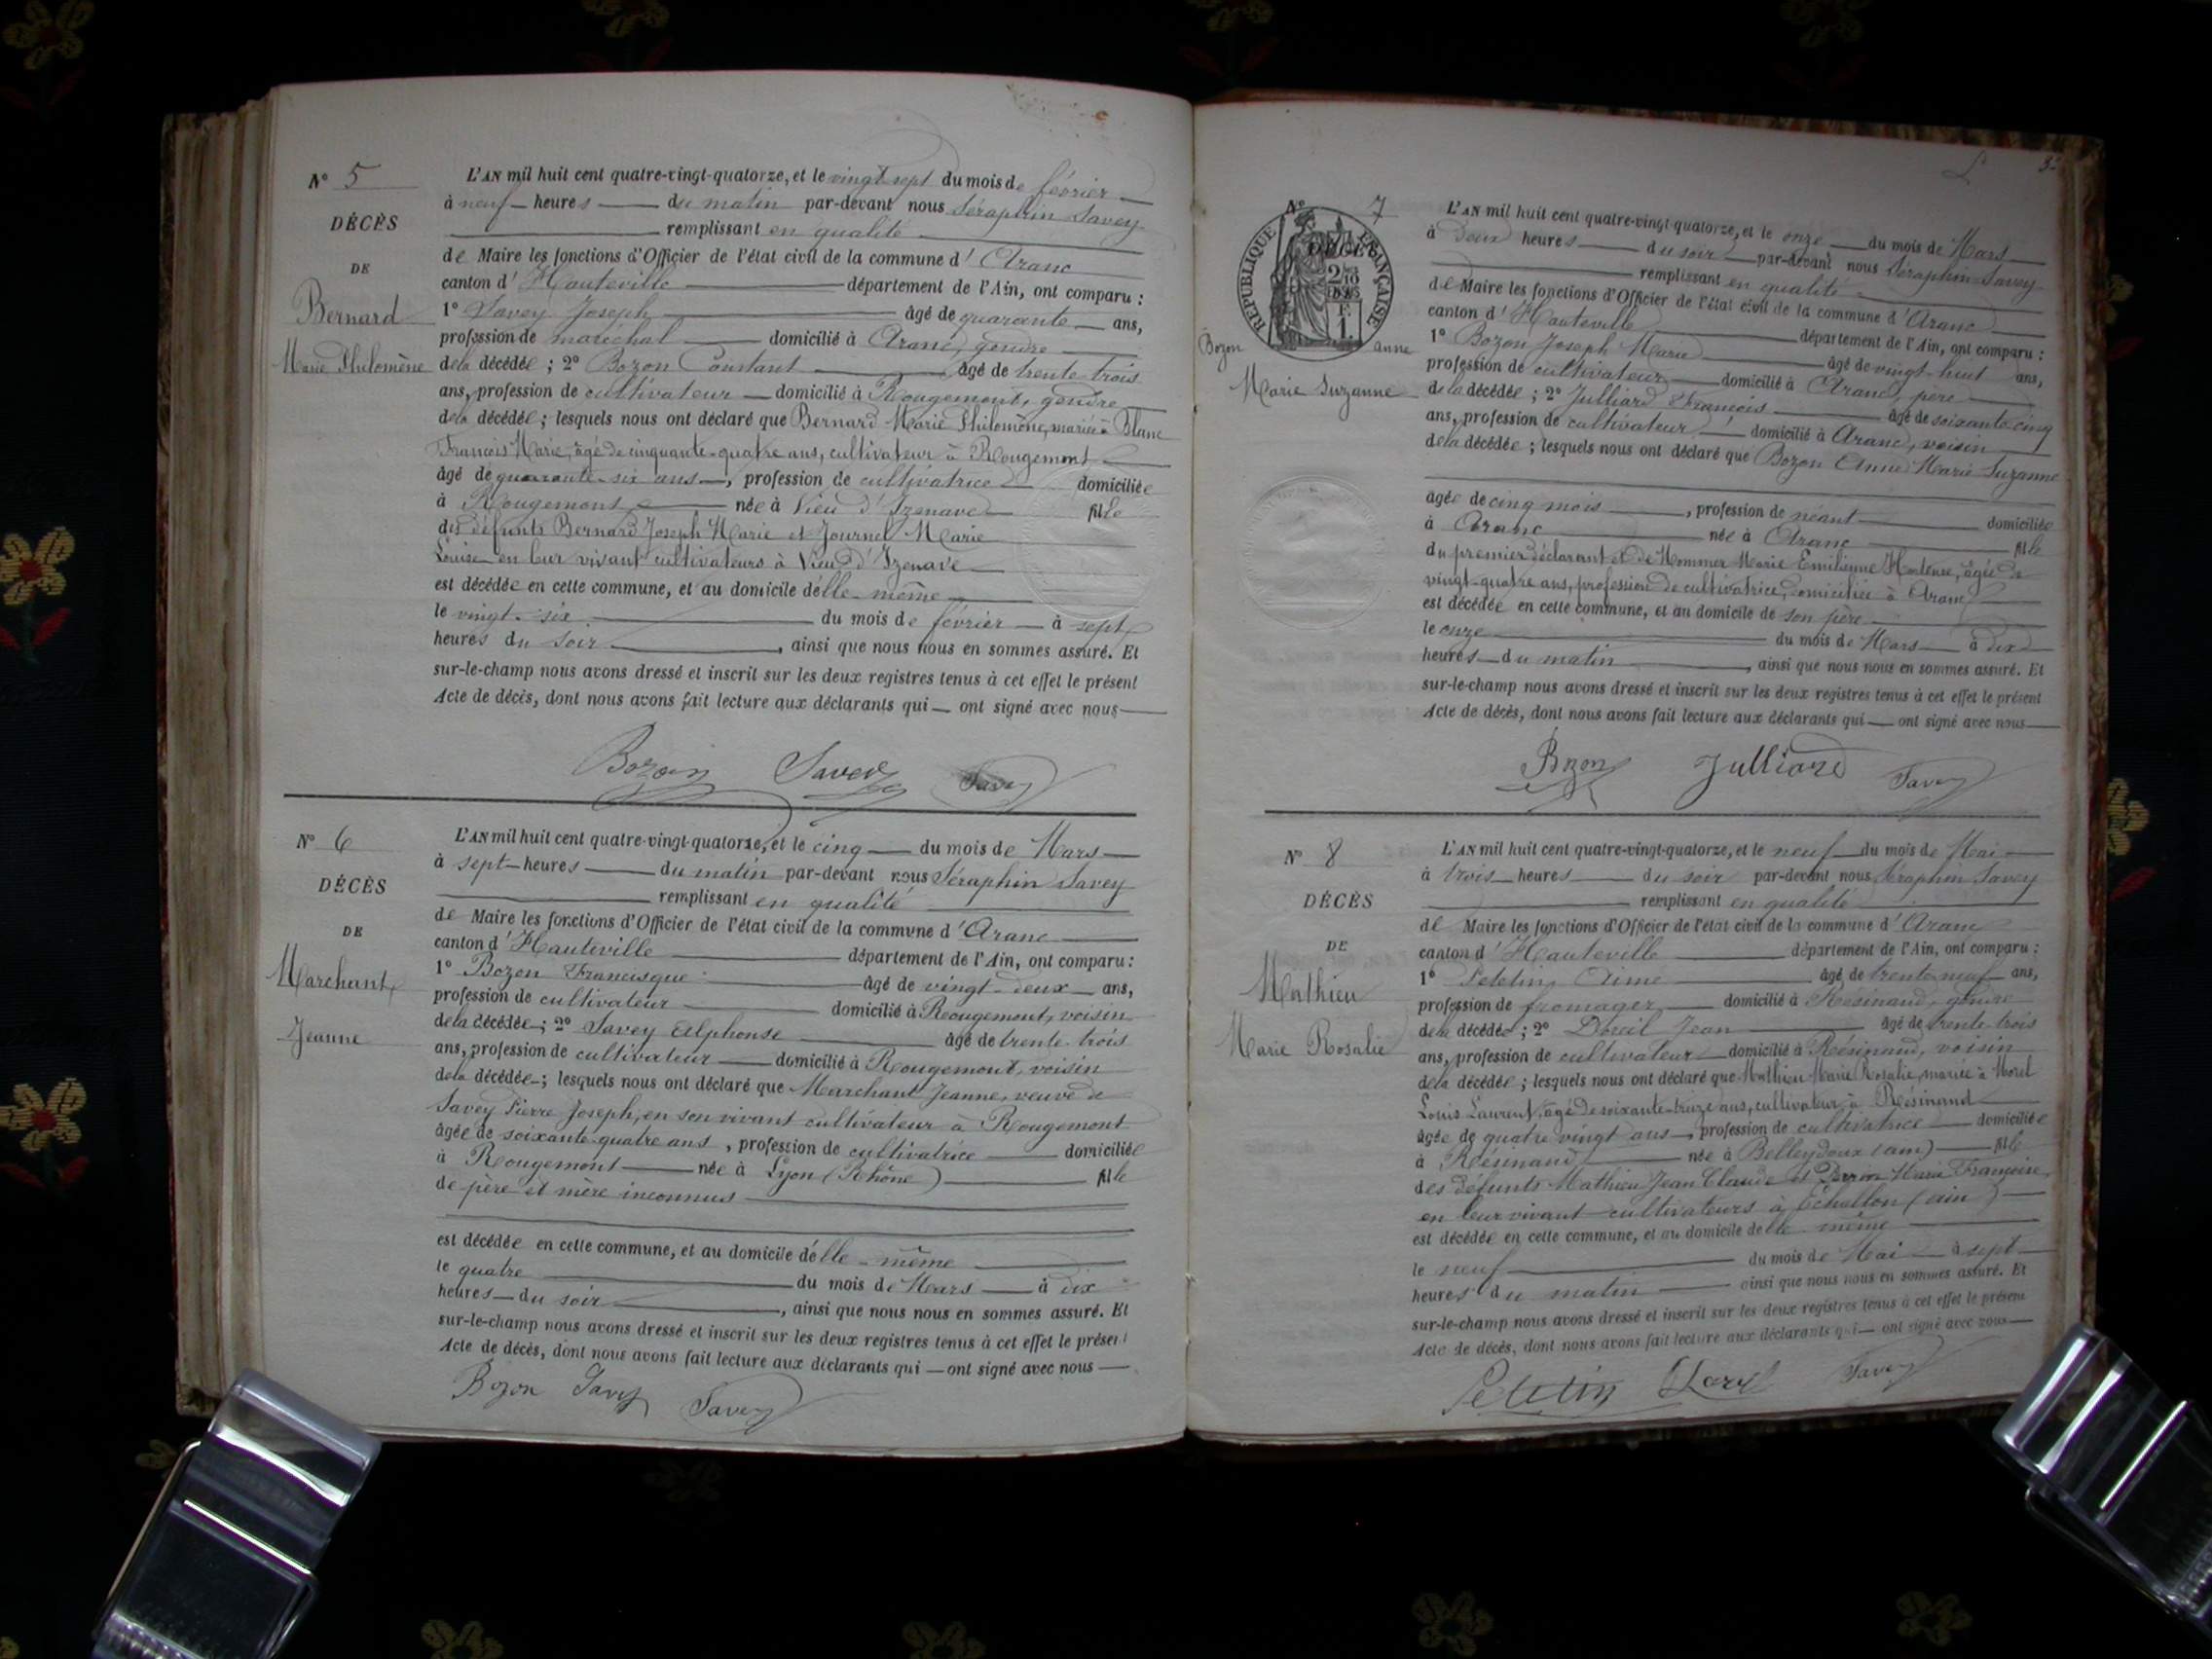 N° 5
DÉCÈS
DE
Bernard
Marie Philomène
L'AN mil huit cent quatre-vingt-quatorze, et le vingt sept du mois de février
à neuf heures du matin par-devant nous Séraphin Savey
remplissant en qualité
de Maire les fonctions d'Officier de l'état civil de la commune d'Aranc
canton d'Hauteville département de l'Ain, ont comparu :
1° Savey Joseph âgé de quarante ans,
profession de maréchal domicilié à Aranc, gendre
de la décédée ; 2° Bozon Constant âgé de trente-trois
ans, profession de cultivateur domicilié à Rougemont, gendre
de la décédée ; lesquels nous ont déclaré que Bernard Marie Philomène, mariée à Blanc
François Marie, âgé de cinquante-quatre ans, cultivateur à Rougemont
âgé de quarante-six ans, profession de cultivatrice domiciliée
à Rougemont née à Vieu d'Izenave fille
des défunts Bernard Joseph Marie et Journel Marie
Louise en leur vivant cultivateurs à Vieu d'Izenave
est décédée en cette commune, et au domicile d'elle-même
le vingt-six du mois de février à sept
heures du soir, ainsi que nous nous en sommes assuré. Et
sur-le-champ nous avons dressé et inscrit sur les deux registres tenus à cet effet le présent
Acte de décès, dont nous avons fait lecture aux déclarants qui ont signé avec nous
Bozon Savey Savey
N° 6
DÉCÈS
DE
Marchant
Jeanne
L'AN mil huit cent quatre-vingt-quatorze, et le cinq du mois de Mars
à sept heures du matin par-devant nous Séraphin Savey
remplissant en qualité
de Maire les fonctions d'Officier de l'état civil de la commune d'Aranc
canton d'Hauteville département de l'Ain, ont comparu :
1° Bozon Francisque âgé de vingt-deux ans,
profession de cultivateur domicilié à Rougemont, voisin
de la décédée ; 2° Savey Alphonse âgé de trente-trois
ans, profession de cultivateur domicilié à Rougemont, voisin
de la décédée ; lesquels nous ont déclaré que Marchant Jeanne, veuve de
Savey Pierre Joseph, en son vivant cultivateur à Rougemont
âgée de soixante-quatre ans, profession de cultivatrice domiciliée
à Rougemont née à Lyon (Rhône) fille
de père et mère inconnus
est décédée en cette commune, et au domicile d'elle-même
le quatre du mois de Mars à dix
heures du soir, ainsi que nous nous en sommes assuré. Et
sur-le-champ nous avons dressé et inscrit sur les deux registres tenus à cet effet le présent
Acte de décès, dont nous avons fait lecture aux déclarants qui ont signé avec nous
Bozon Savey Savey
N° 7
DÉCÈS
RÉPUBLIQUE FRANÇAISE
Bozon anne
Marie Suzanne
L'AN mil huit cent quatre-vingt-quatorze, et le onze du mois de Mars
à deux heures du soir par-devant nous Séraphin Savey
remplissant en qualité
de Maire les fonctions d'Officier de l'état civil de la commune d'Aranc
canton d'Hauteville département de l'Ain, ont comparu :
1° Bozon Joseph Marie âgé de vingt-huit ans,
profession de cultivateur domicilié à Aranc, père
de la décédée ; 2° Julliard François âgé de soixante cinq
ans, profession de cultivateur domicilié à Aranc, voisin
de la décédée ; lesquels nous ont déclaré que Bozon Anne Marie Suzanne
âgée de cinq mois, profession de néant domiciliée
à Aranc née à Aranc fille
du premier déclarant et de Mommer Marie Emilienne Hortense, âgée de
vingt-quatre ans, profession de cultivatrice, domiciliée à Aranc
est décédée en cette commune, et au domicile de son père
le onze du mois de Mars à dix
heures du matin, ainsi que nous nous en sommes assuré. Et
sur-le-champ nous avons dressé et inscrit sur les deux registres tenus à cet effet le présent
Acte de décès, dont nous avons fait lecture aux déclarants qui ont signé avec nous
Bozon Julliard Savey
N° 8
DÉCÈS
DE
Mathieu
Marie Rosalie
L'AN mil huit cent quatre-vingt-quatorze, et le neuf du mois de Mai
à trois heures du soir par-devant nous Séraphin Savey
remplissant en qualité
de Maire les fonctions d'Officier de l'état civil de la commune d'Aranc
canton d'Hauteville département de l'Ain, ont comparu :
1° Peletin Aimé âgé de trente neuf ans,
profession de fromager domicilié à Résinand, gendre
de la décédée ; 2° Jean âgé de trente-trois
ans, profession de cultivateur domicilié à Résinand, voisin
de la décédée ; lesquels nous ont déclaré que Mathieu Marie Rosalie, mariée à Morel
Louis Laurent, âgé de soixante-treize ans, cultivateur à Résinand
âgée de quatre vingt ans, profession de cultivatrice domiciliée
à Résinand née à Belleydoux (ain) fille
des défunts Mathieu Jean Claude et Perrin Marie Françoise
en leur vivant cultivateurs à Echallon (ain)
est décédée en cette commune, et au domicile d'elle même
le neuf du mois de Mai à sept
heures du matin ainsi que nous nous en sommes assuré. Et
sur-le-champ nous avons dressé et inscrit sur les deux registres tenus à cet effet le présent
Acte de décès, dont nous avons fait lecture aux déclarants qui ont signé avec nous
Peletin Savey